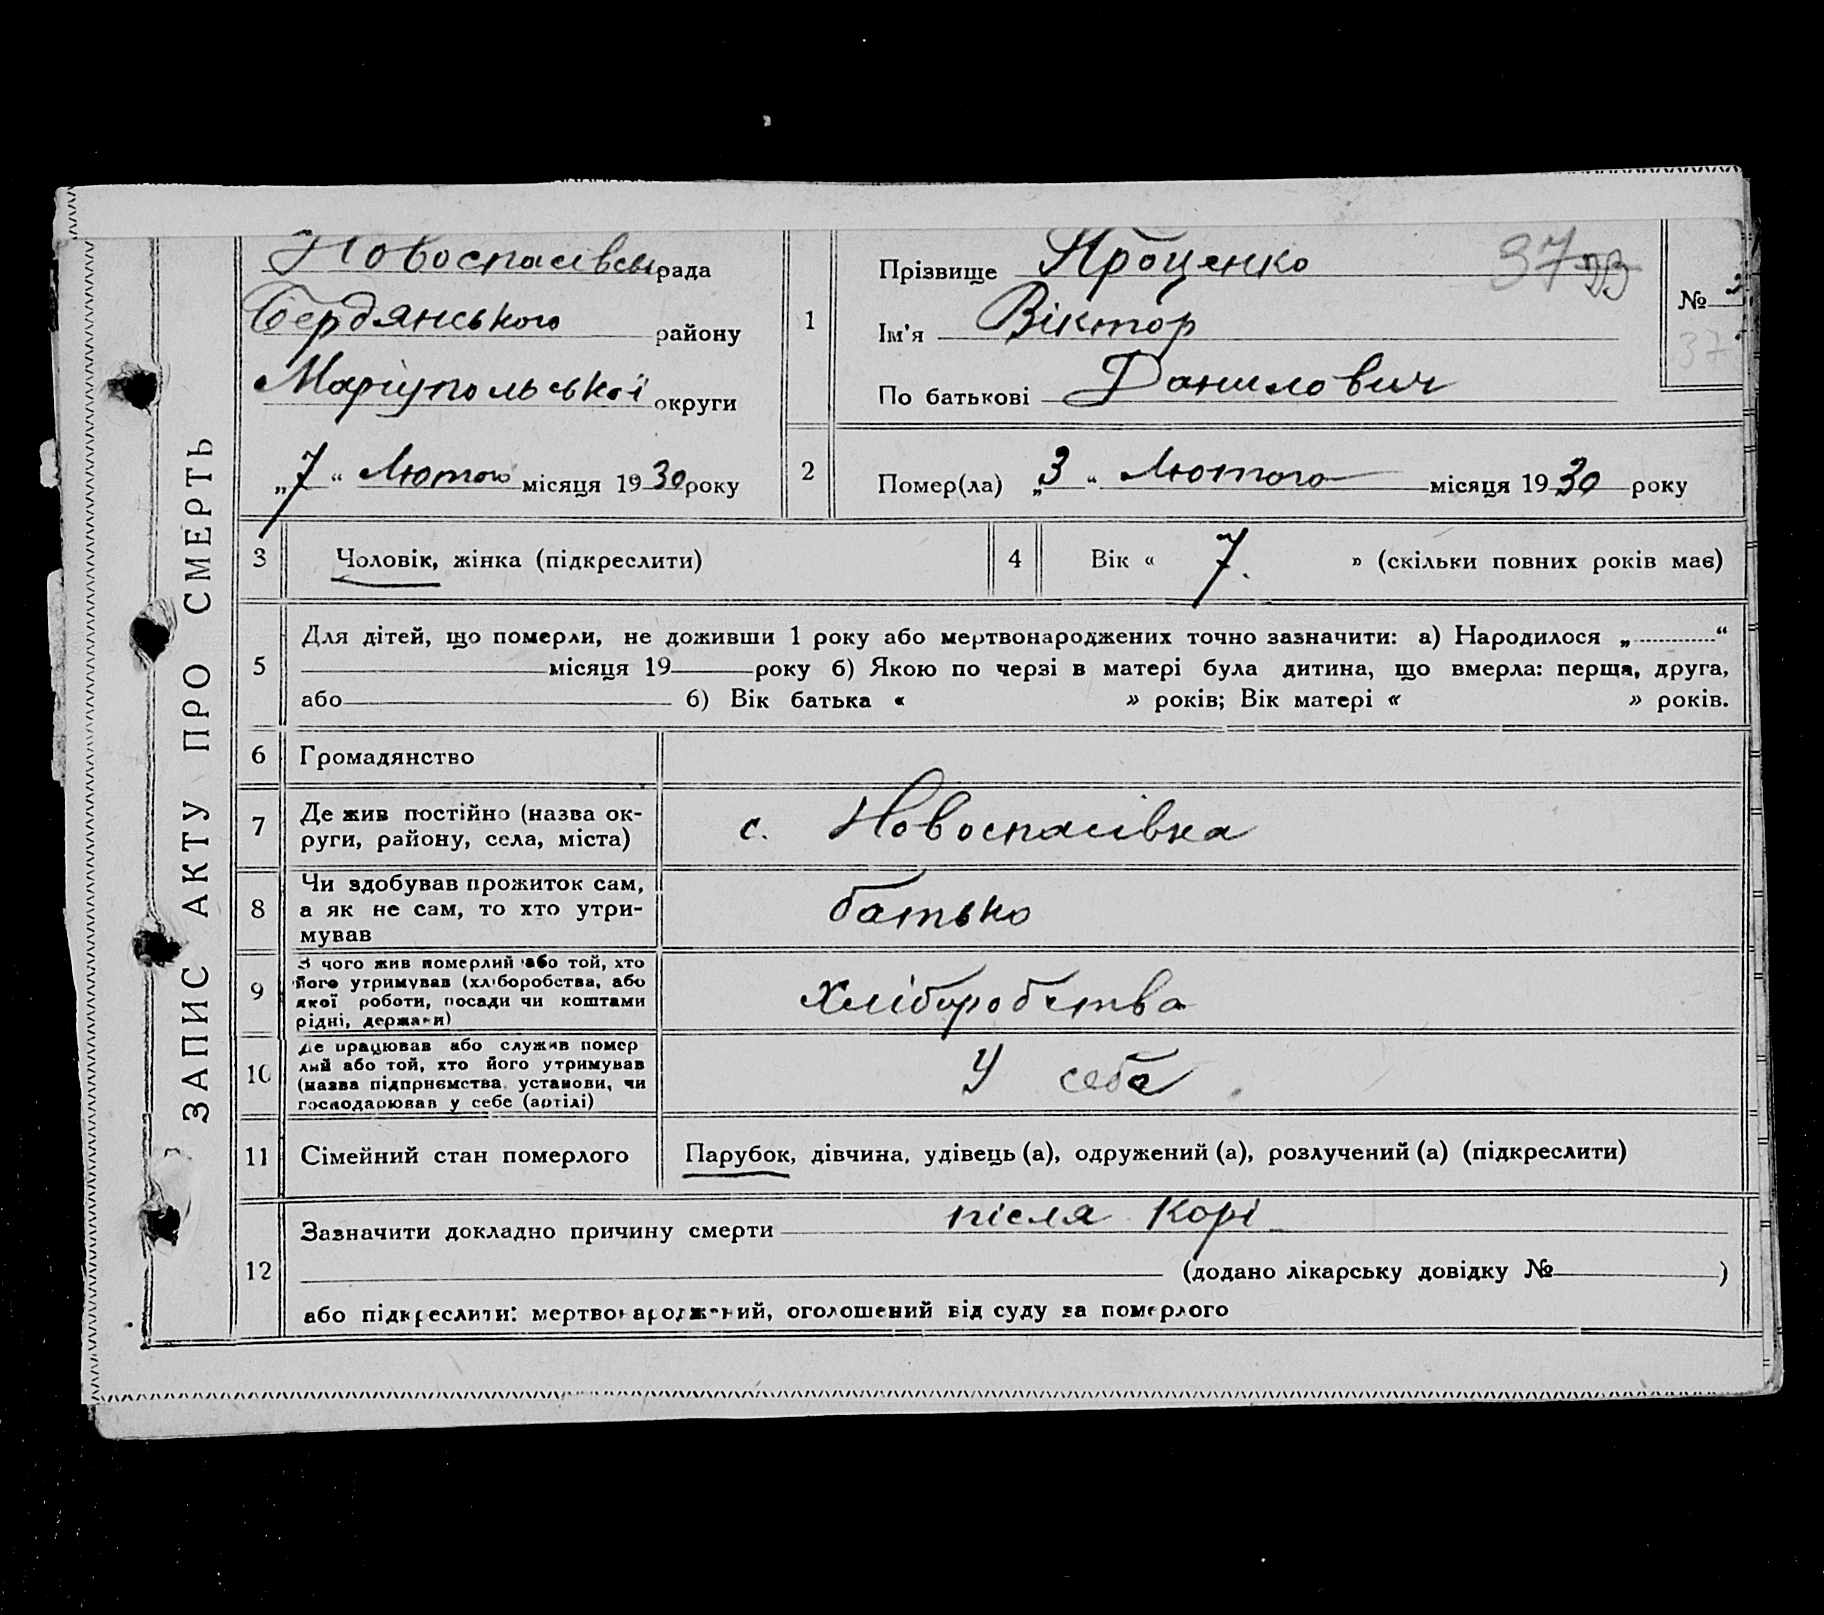 ЗАПИС АКТУ ПРО СМЕРТЬ
Новоспасівська рада
Бердянського району
Маріупольської округи
„7“ Лютого місяця 1930 року
1
Прізвище Проценко
Ім'я Віктор
По батькові Данилович
37
№
37
2
Помер(ла) „3“ Лютого місяця 1930 року
3 Чоловік, жінка (підкреслити)
4 Вік « 7. » (скільки повних років має)
5
Для дітей, що померли, не доживши 1 року або мертвонароджених точно зазначити: а) Народилося „ “
місяця 19 року б) Якою по черзі в матері була дитина, що вмерла: перща, друга,
або б) Вік батька « » років; Вік матері « » років.
6 Громадянство
7 Де жив постійно (назва ок-
руги, району, села, міста)
с. Новоспасівка
8 Чи здобував прожиток сам,
а як не сам, то хто утри-
мував
батько
9 З чого жив померлий або той, хто
його утримував (хліборобства, або
якої роботи, посади чи коштами
рідні, держави)
Хліборобства
10 Де працював або служив помер
лий або той, хто його утримував
(назва підприємства, установи, чи
господарював у себе (артілі)
У себе
11 Сімейний стан померлого
Парубок, дівчина, удівець (а), одружений (а), розлучений (а) (підкреслити)
12
Зазначити докладно причину смерти після корі
(додано лікарську довідку № )
або підкреслити: мертвонароджений, оголошений від суду за померлого